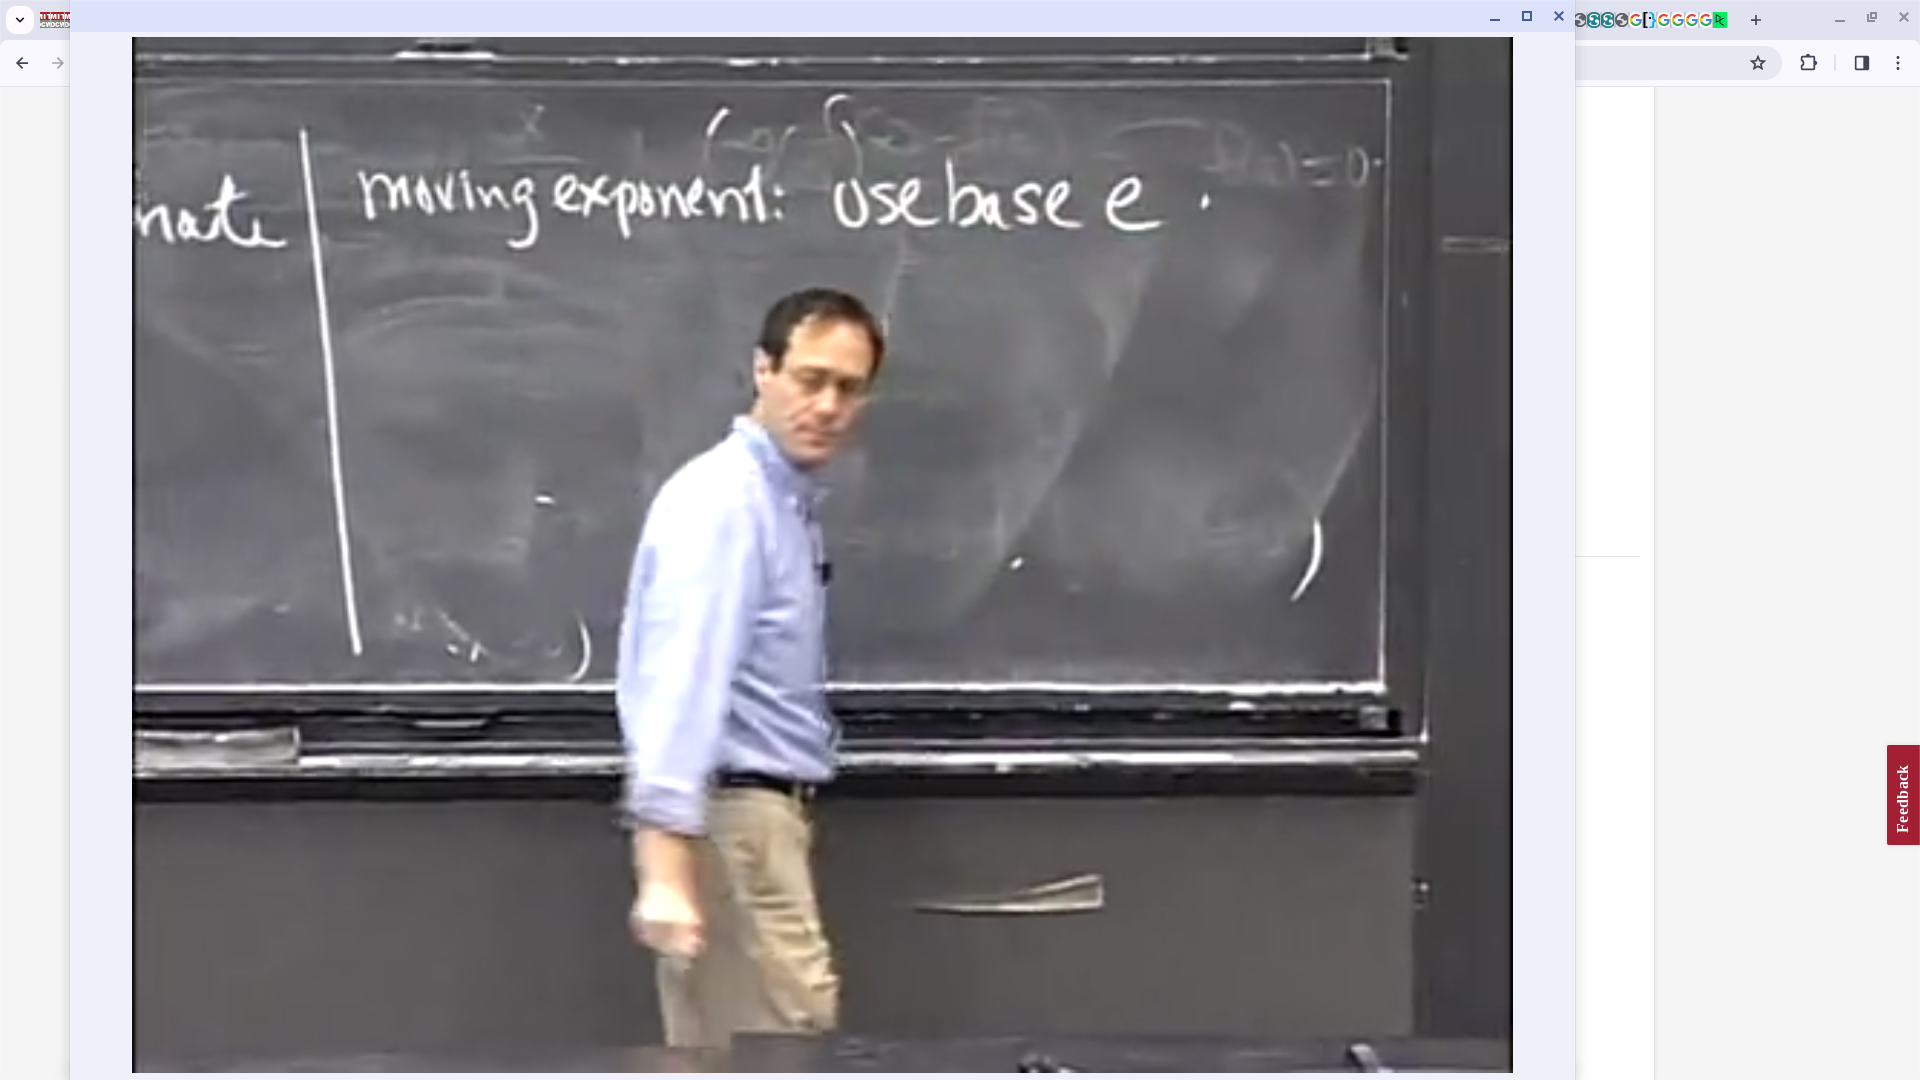 nate
moving exponent: use base e .
Feedback